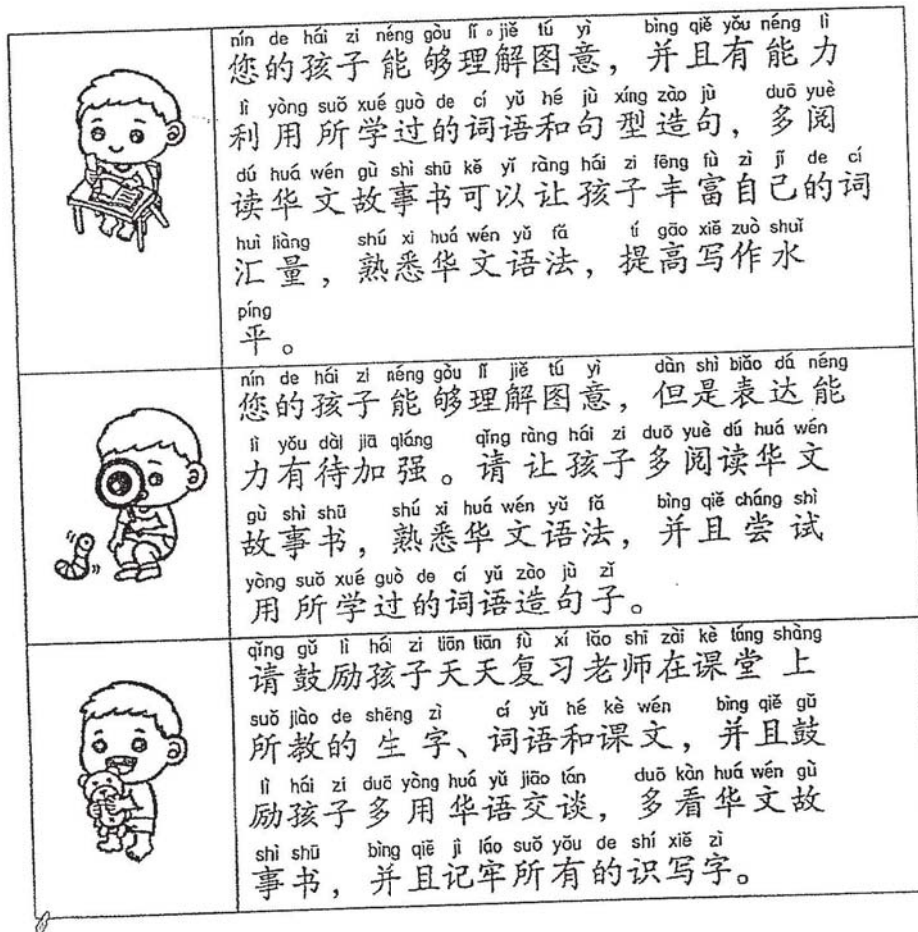 nín de hái zi néng gòu lǐ 。jiě tú yì bìng qiě yǒu néng lì
您的孩子能够理解图意，并且有能力
lì yòng suǒ xué guò de cí yǔ hé jù xíng zào jù duō yuè
利用所学过的词语和句型造句，多阅
dú huá wén gù shì shū kě yǐ ràng hái zi fēng fù zì jǐ de cí
读华文故事书可以让孩子丰富自己的词
huì liàng shú xi huá wén yǔ fǎ tí gāo xiě zuò shuǐ
汇量，熟悉华文语法，提高写作水
píng
平。
nín de hái zi néng gòu lǐ jiě tú yì dàn shì biǎo dá néng
您的孩子能够理解图意，但是表达能
lì yǒu dài jiā qiáng qǐng ràng hái zi duō yuè dú huá wén
力有待加强。请让孩子多阅读华文
gù shì shū shú xi huá wén yǔ fǎ bìng qiě cháng shì
故事书，熟悉华文语法，并且尝试
yòng suǒ xué guò de cí yǔ zào jù zǐ
用所学过的词语造句子。
qǐng gǔ lì hái zi tiān tiān fù xí lǎo shī zài kè táng shàng
请鼓励孩子天天复习老师在课堂上
suǒ jiào de shēng zì cí yǔ hé kè wén bìng qiě gǔ
所教的生字、词语和课文，并且鼓
lì hái zi duō yòng huá yǔ jiāo tán duō kàn huá wén gù
励孩子多用华语交谈，多看华文故
shì shū bìng qiě jì láo suǒ yǒu de shí xiě zì
事书，并且记牢所有的识写字。